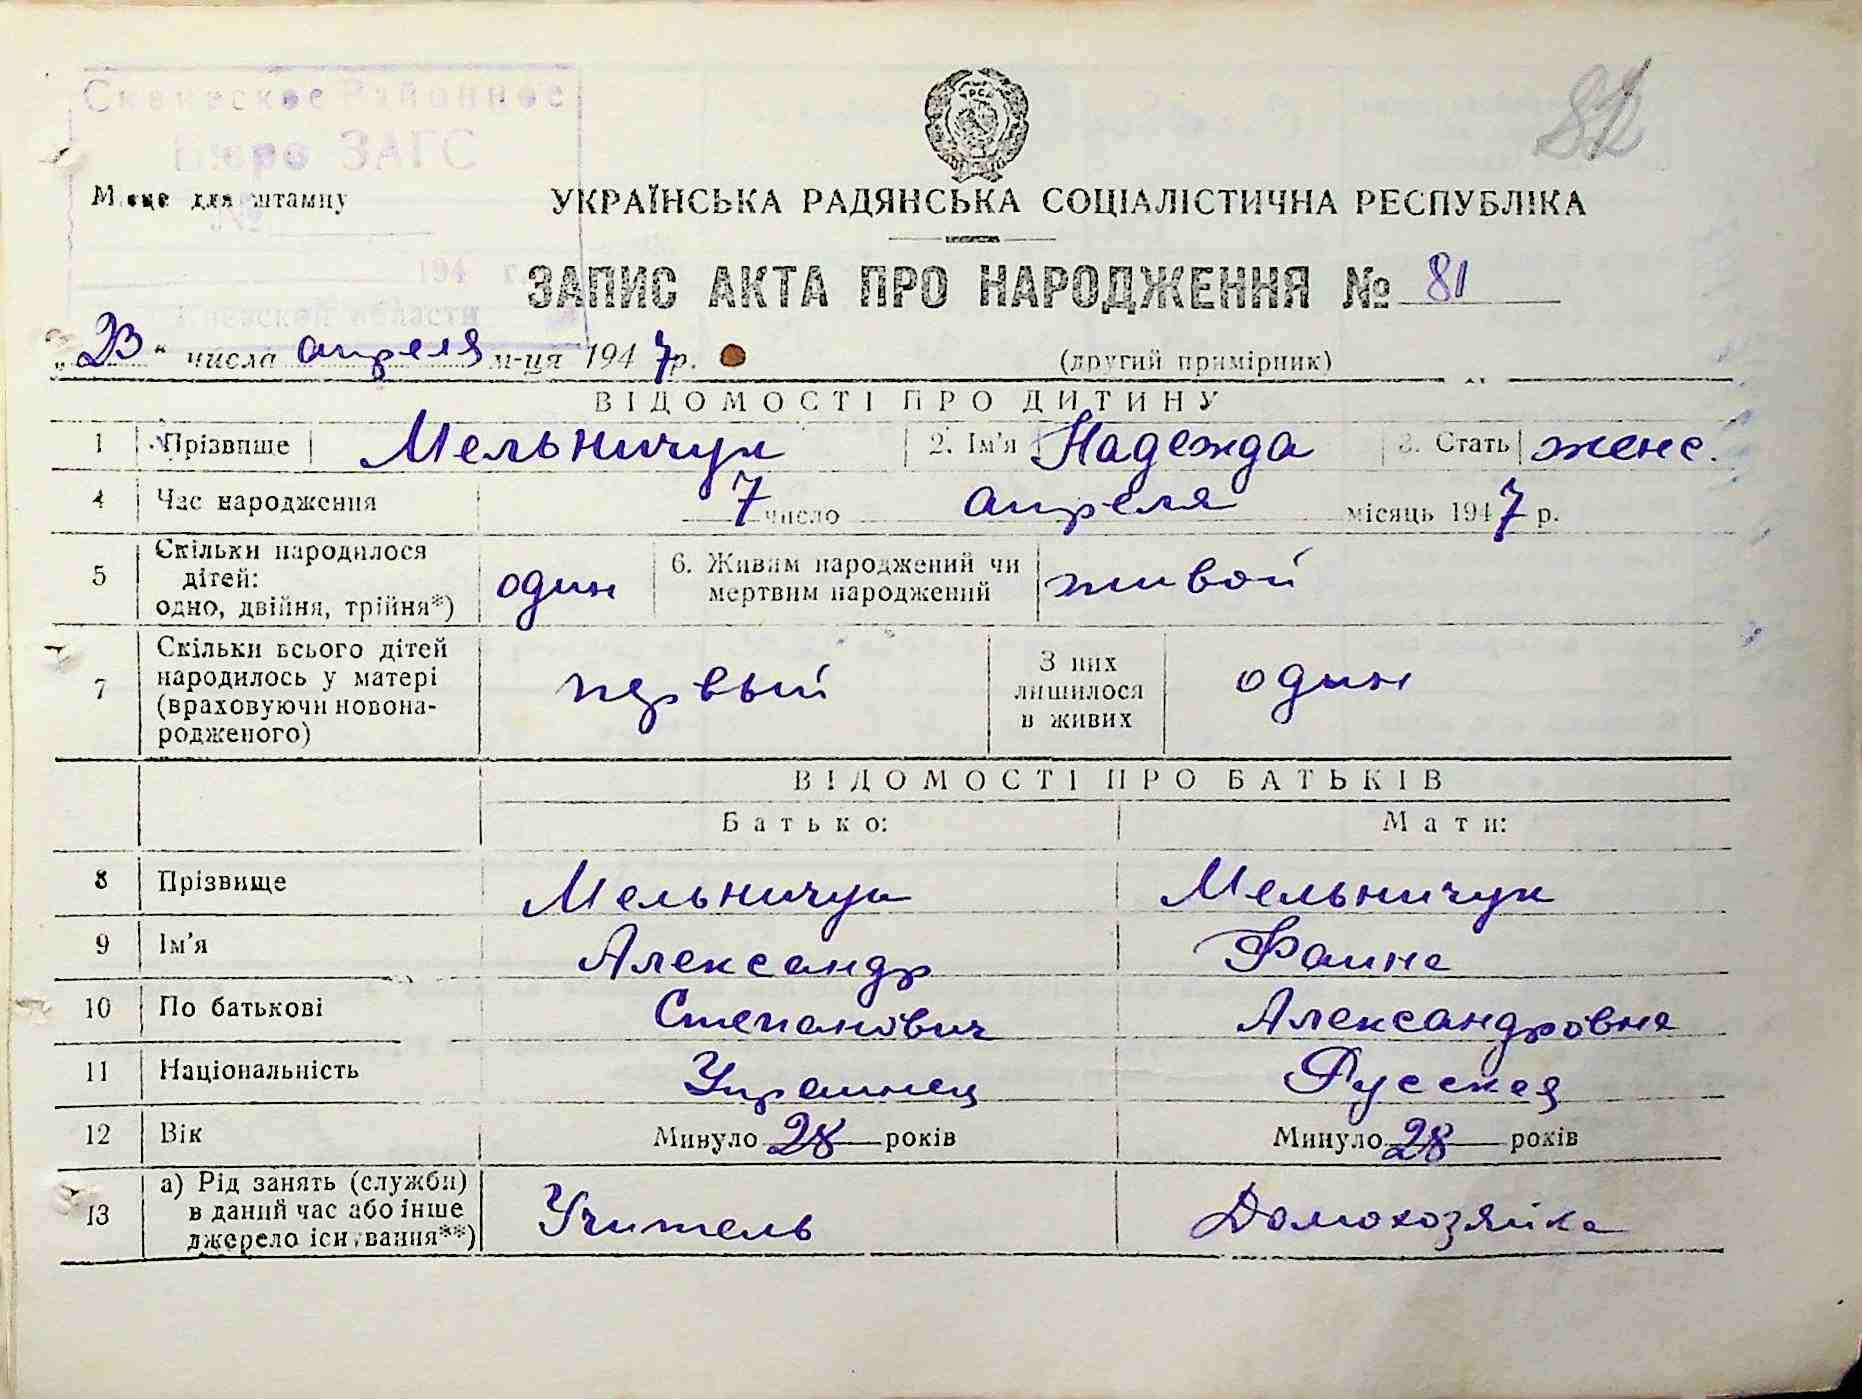 Сквирское Районное
Бюро ЗАГС
82
Місце для штампу
УКРАЇНСЬКА РАДЯНСЬКА СОЦІАЛІСТИЧНА РЕСПУБЛІКА
№
194 г.
ЗАПИС АКТА ПРО НАРОДЖЕННЯ № 81
Киевской области
„23“ числа апреля м-ця 1947 р. (другий примірник)
ВІДОМОСТІ ПРО ДИТИНУ
1 Прізвище Мельничук 2. Ім'я Надежда 3. Стать женс.
4 Час народження 7 число апреля місяць 1947 р.
5 Скільки народилося дітей: одно, двійня, трійня*) один 6. Живим народжений чи мертвим народжений живой
7 Скільки всього дітей народилось у матері (враховуючи новонародженого) первый З них лишилося в живих один
ВІДОМОСТІ ПРО БАТЬКІВ
Батько: Мати:
8 Прізвище Мельничук Мельничук
9 Ім'я Александр Фаина
10 По батькові Степанович Александровна
11 Національність Украинец Русская
12 Вік Минуло 28 років Минуло 28 років
13 а) Рід занять (служби) в даний час або інше джерело існування**) Учитель Домохозяйка